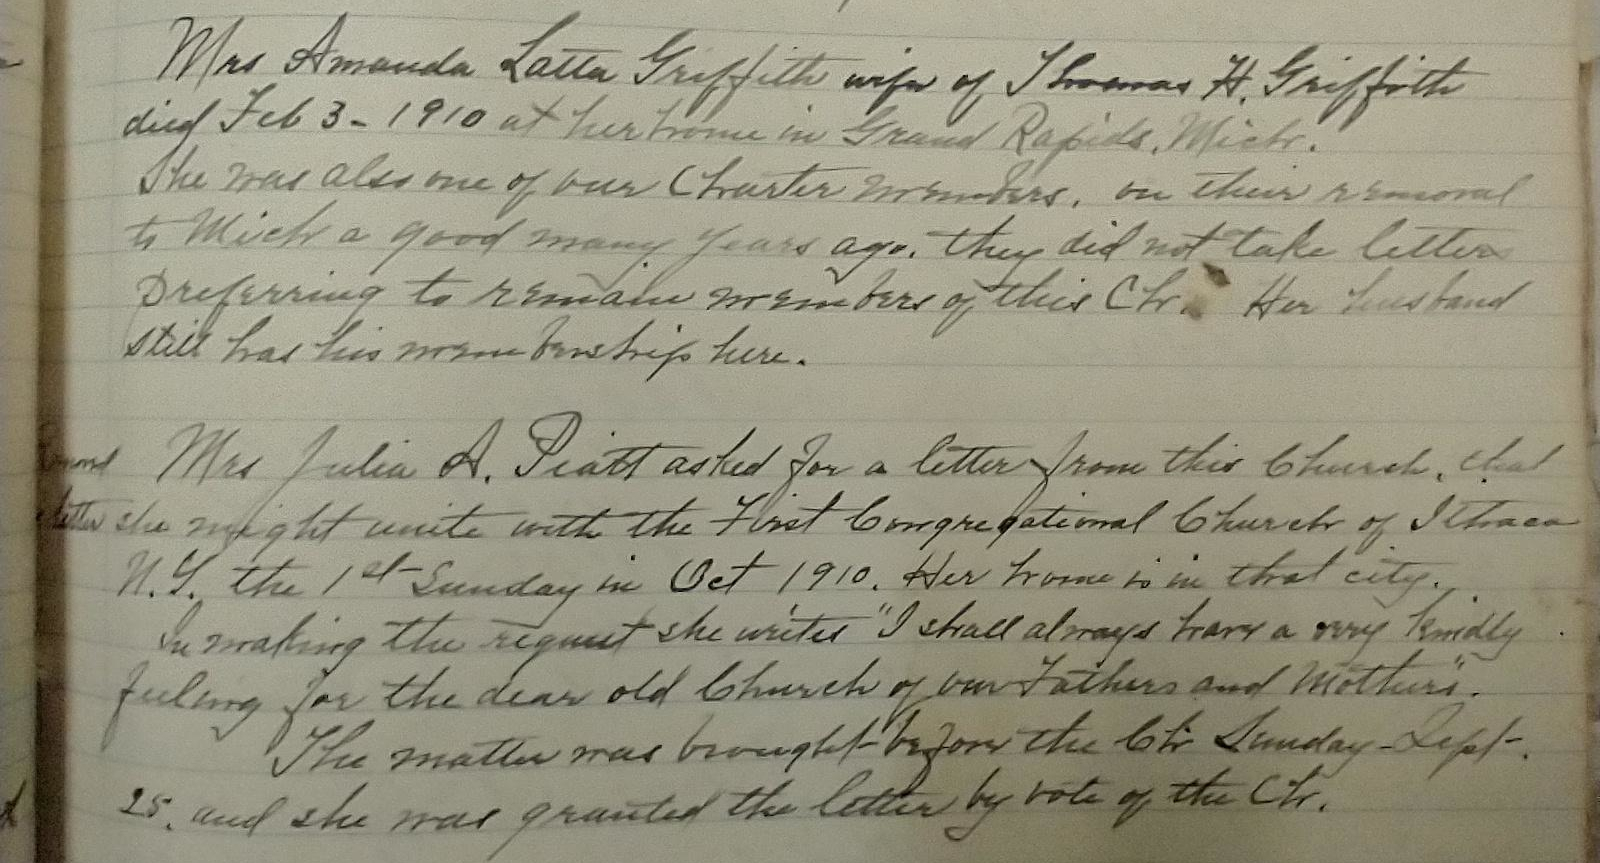 Mrs Amanda Latta Griffith wife of Thomas H. Griffith
died Feb 3 - 1910 at her home in Grand Rapids, Mich.
She was also one of our Charter members, on their removal
to Mich a good many years ago. they did not take letters
preferring to remain members of this Ch. Her husband
still has his membership here.
Mrs Julia A. Piatt asked for a letter from this Church, that
letter she might unite with the First Congregational Church of Ithaca
N.Y. the 1st Sunday in Oct 1910. Her home is in that city.
In making the request she writes "I shall always have a very kindly
feeling for the dear old Church of our Fathers and Mothers".
The matter was brought before the Ch Sunday - Sept -.
25. and she was granted the letter by vote of the Ch.